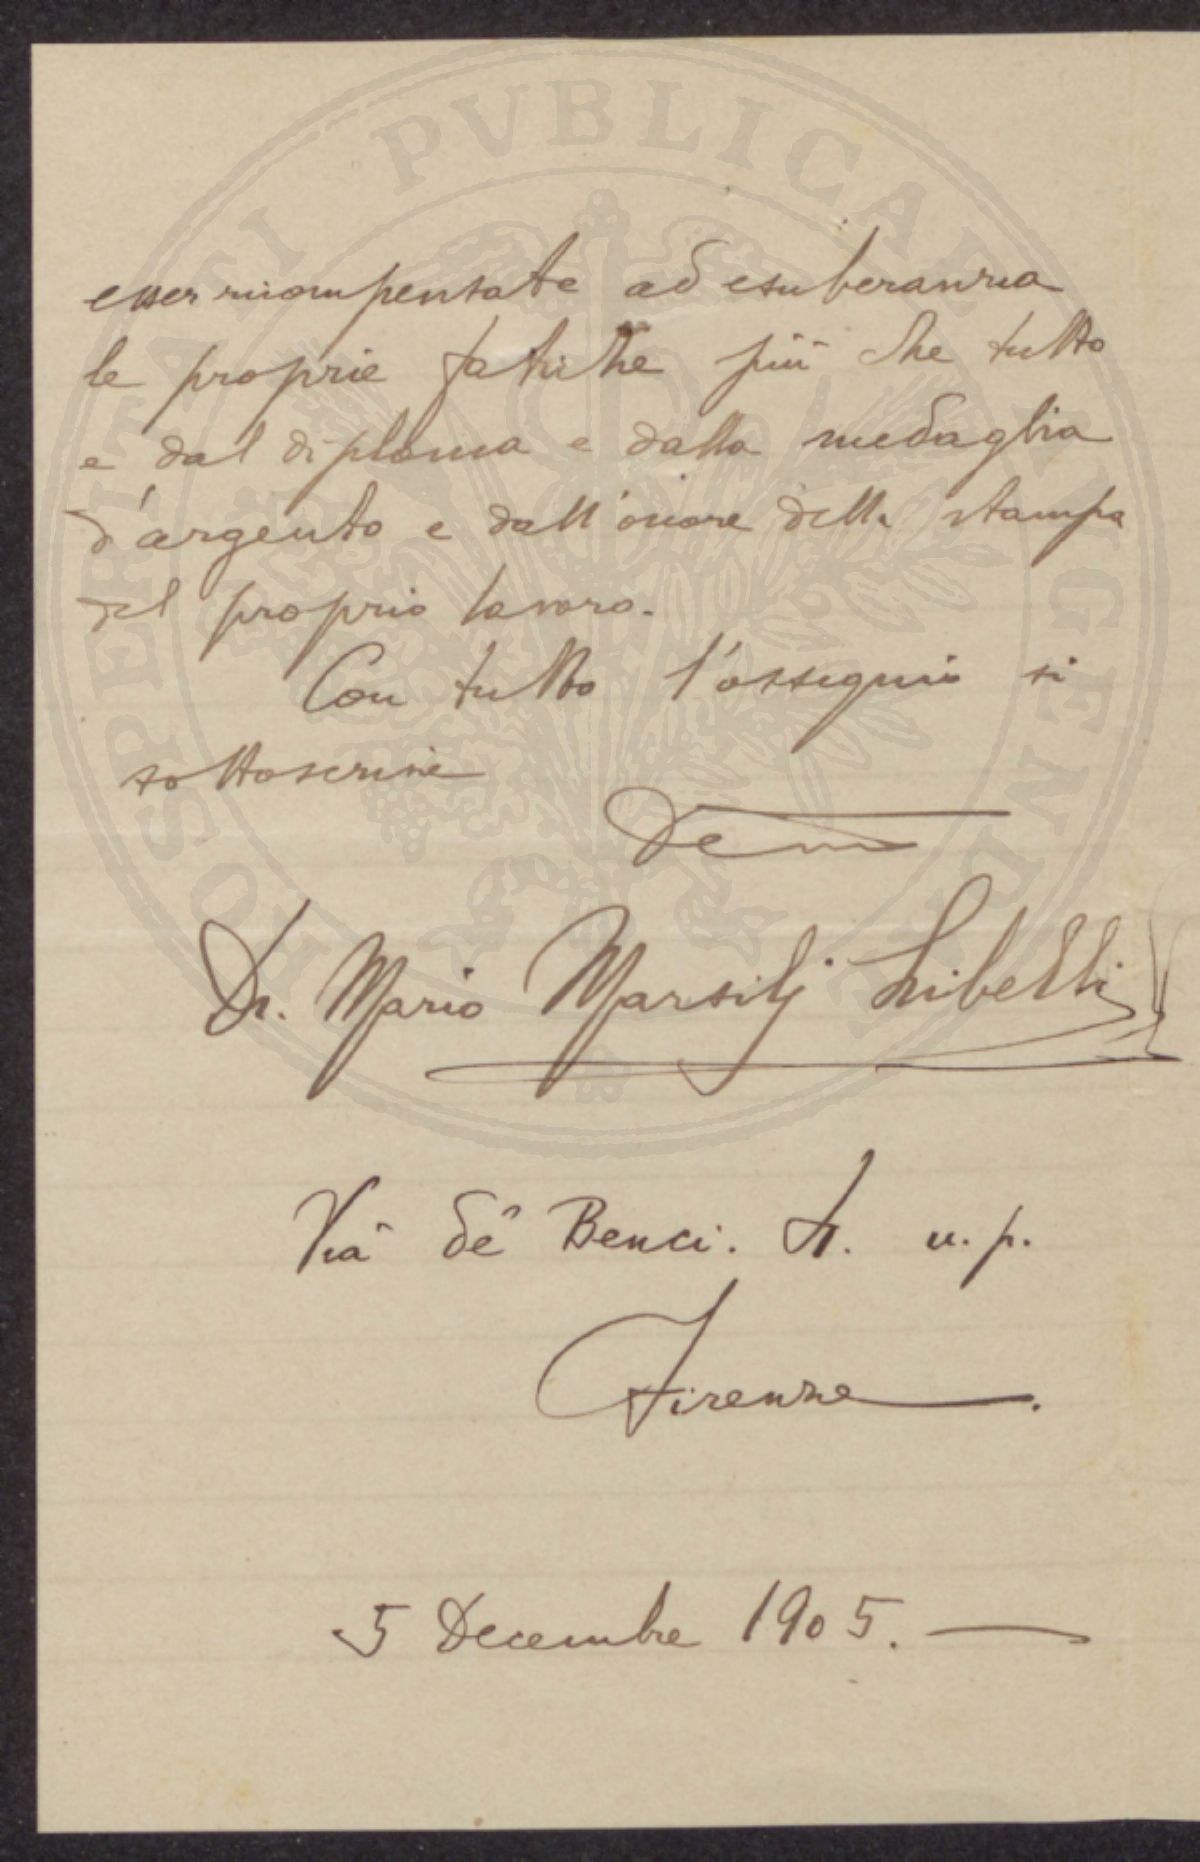 PVBLICAE
PROSPERITATI AVGENDAE
esser ricompensate ad esuberanza
le proprie fatiche più che tutto
e dal diploma e dalla medaglia
d'argento e dall'onore della stampa
del proprio lavoro.
Con tutto l'ossequio si
sottoscrive
Dr. Mario Marsilj Libelli
Via de' Benci. u. p.
Firenze.
5 Decembre 1905.